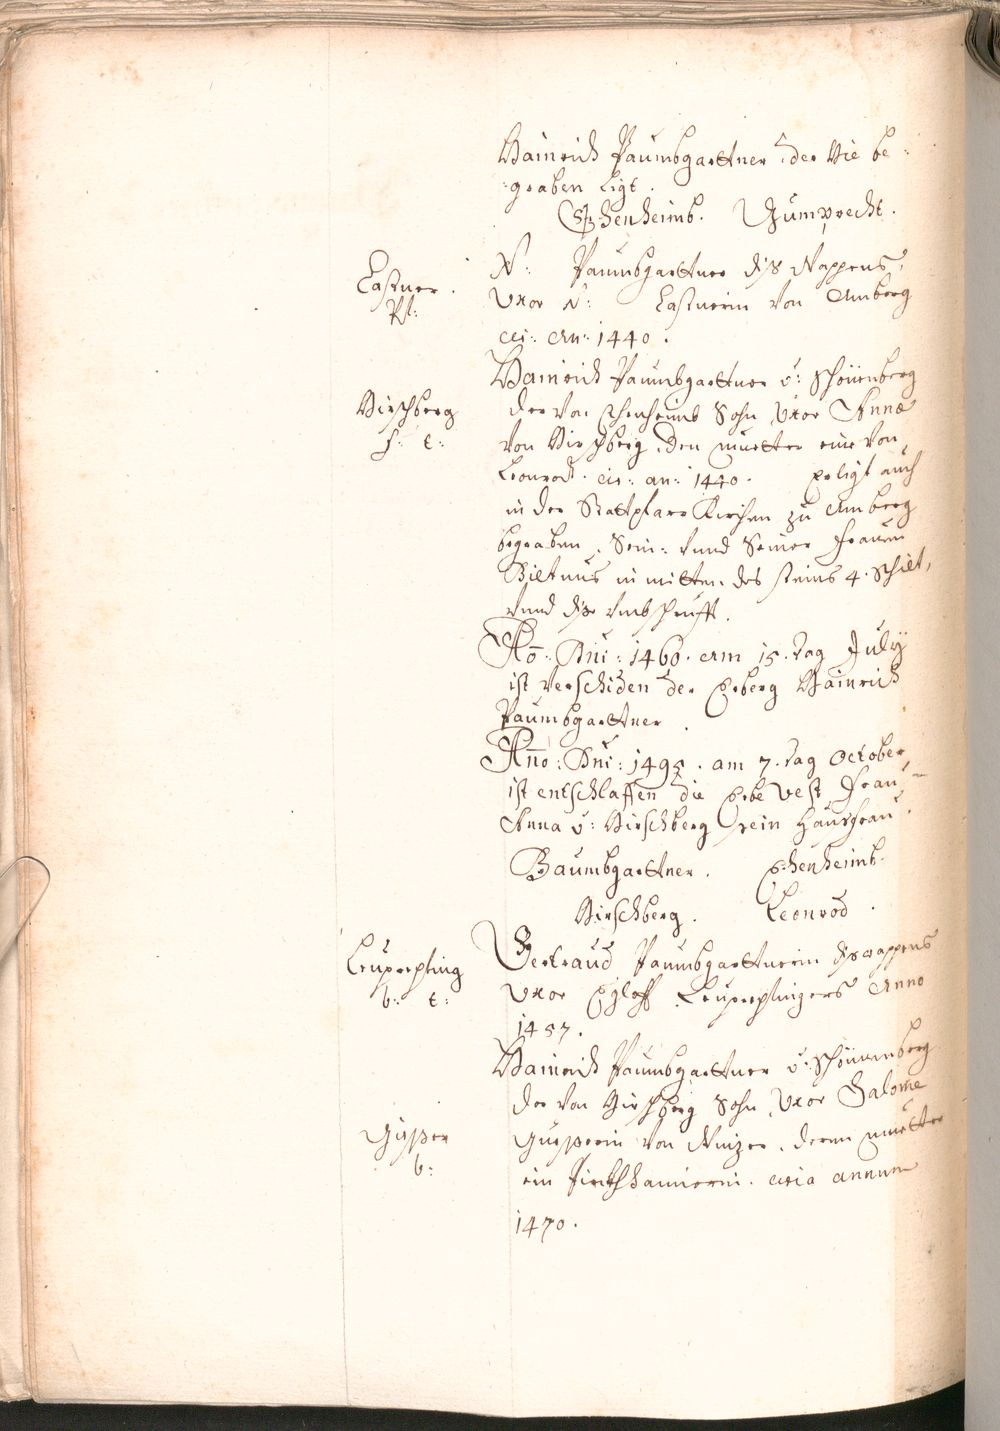 Hainrich Paumbgarttner, der Hie be:
:graben Ligt.
Echenheimb. Gumprecht.
Castner.
Pf:
N: Paumbgarttner diß Wappens,
Uxor N: Castnerin von Amberg
cir: An: 1440.
Hainrich Paumbgarttner v: Schönnberg
Hirschberg
f: t:
der von Echenheimb Sohn, Uxor Anna
von Hirschberg, den muetter eine von
Leonrod. cir: an: 1440. Er ligt auch
in der Stattpfarr Kirchen zu Amberg
begraben, Sein: vnnd Seiner Frauen
Biltnus in mitten des steins 4. Schilt,
vnnd dise vmbschrifft.
Ao: Dni: 1460. am 15. tag July
ist verschiden der Erberg Hainrich
Paumbgarttner.
Anno: Dni: 1495. am 7. tag October
ist entschlaffen die Erbe vest Frau
Anna v: Hirschberg sein Hausfrau.
Baumbgarttner. Echenheimb.
Hirschberg. Leonrod.
Leuprehting
b: t:
Gertraud Paumbgarttnerin diß wappens
Uxor Egloff Leuprehtingers Anno
1457.
Hainrich Paumbgarttner v: Schönnenberg
der von Hirschberg Sohn, Uxor Salome
b:
von Winzer, deren muetter
ein circa annum
1470.